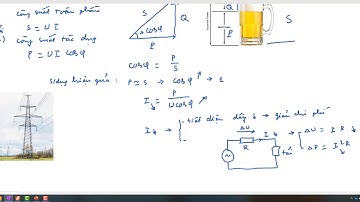 Công suất toàn phần
S = U I
Công suất tác dụng
P = U I cosφ
S
Q
cosφ
P
cosφ = P/S
Q
P
S
Sử dụng hiệu quả: P ≈ S → cosφ ↗ → 1
I↓ = P / U cosφ ↗
I↓ → { - tiết diện dây ↓ → giảm chi phí
ΔU
I ↓
R
tải
→ { ΔU = I R ↓
ΔP = I² R ↓